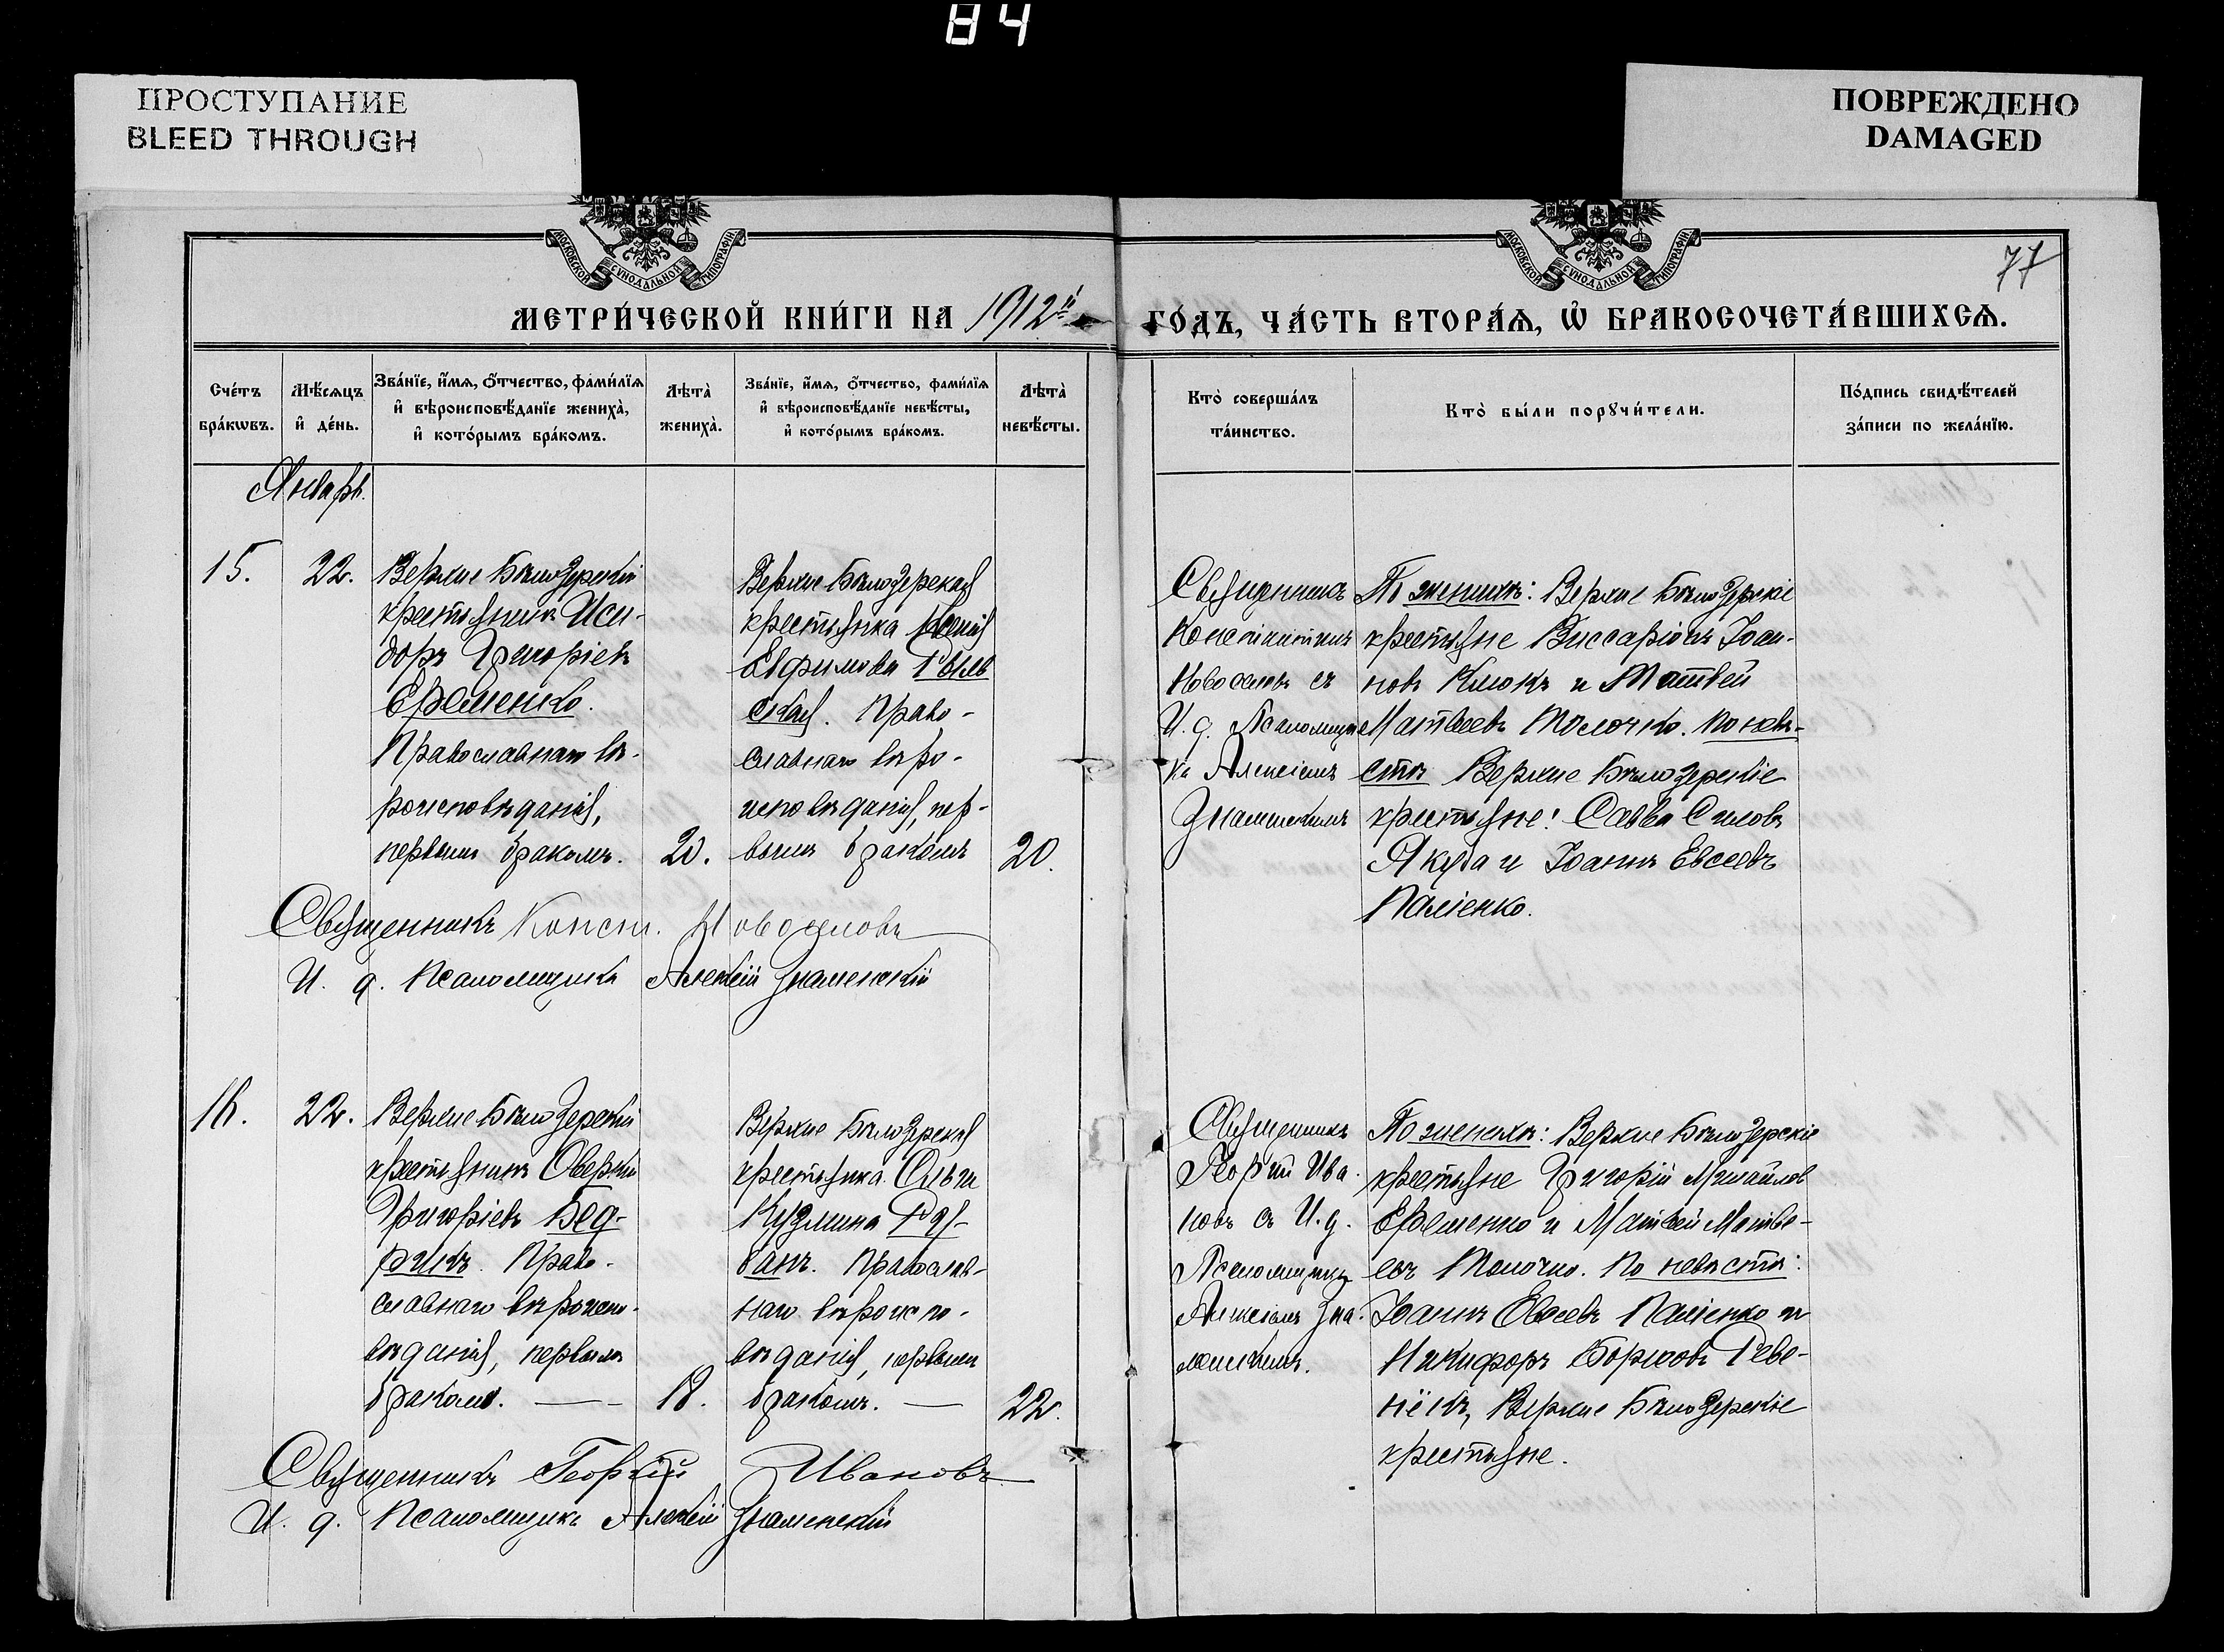 84
ПРОСТУПАНИЕ
BLEED THROUGH
ПОВРЕЖДЕНО
DAMAGED
МОСКОВСКОЙ СѴНОДАЛЬНОЙ ТИПОГРАФІИ
МОСКОВСКОЙ СѴНОДАЛЬНОЙ ТИПОГРАФІИ
77
МЕТРИ́ЧЕСКОЙ КНИ́ГИ НА 1912й
ГО́ДЪ, ЧА́СТЬ ВТОРА́Ѧ, Ѡ҆ БРАКОСОЧЕТА́ВШИХСѦ.
Сче́тъ
бра́кѡвъ.
Мѣ́сѧцъ
и҆ де́нь.
Зва́нїе, и҆́мѧ, ѻ҆́тчество, фами́лїѧ
и҆ вѣроисповѣ́данїе жениха̀,
и҆ кото́рымъ бра́комъ.
Лѣта̀
жениха̀.
Зва́нїе, и҆́мѧ, ѻ҆́тчество, фами́лїѧ
и҆ вѣроисповѣ́данїе невѣ́сты,
и҆ кото́рымъ бра́комъ.
Лѣта̀
невѣ́сты.
Кто̀ соверша́лъ
та́инство.
Кто̀ бы́ли порꙋчи́тели.
По́дпись свидѣ́телей
за́писи по жела́нїю.
Январь.
15.
22.
Верхне Бѣлозерскій
крестьянинъ Иси-
доръ Григоріевъ
Еременко.
Православнаго вѣ-
роисповѣданія,
первымъ бракомъ.
20.
Верхне Бѣлозерская
крестьянка Ксенія
Евфимова Рыль
ская. Право-
славнаго вѣро-
исповѣданія, пер-
вымъ бракомъ
20.
Священникъ
Константинъ
Новоселовъ съ
И. д. Псаломщи
ка Алексіемъ
Знаменскимъ
По женихѣ: Верхне Бѣлозерскіе
крестьяне Виссаріонъ Іоан-
новъ Клюкъ и Матвей
Матвеевъ Толочко. По невѣ-
стѣ Верхне Бѣлозерскіе
крестьяне: Савва Силовъ
Якуба и Іоаннъ Евсеевъ
Паліенко.
Священникъ Конст. Новоселовъ
И. д. Псаломщика Алексій Знаменскій
16.
22.
Верхне Бѣлозерскій
крестьянинъ Оверкій
Григоріевъ Бед-
рикъ. Право-
славнаго вѣроиспо-
вѣданія, первымъ
бракомъ.
18.
Верхне Бѣлозерская
крестьянка Ольга
Кузмина Ря-
банъ. Православ-
наго вѣроиспо-
вѣданія, первымъ
бракомъ.
22.
Священникъ
Георгій Ива-
новъ съ И. д.
Псаломщика
Алексіемъ Зна-
менскимъ.
По женихѣ: Верхне Бѣлозерскіе
крестьяне Григорій Михайлов
Еременко и Матвей Матве-
евъ Толочко. По невѣстѣ:
Іоаннъ Евсеевъ Паліенко и
Никифоръ Борисовъ Реве-
нёкъ, Верхне Бѣлозерскіе
крестьяне.
Священникъ Георгій Ивановъ
И. д. Псаломщика Алексій Знаменскій